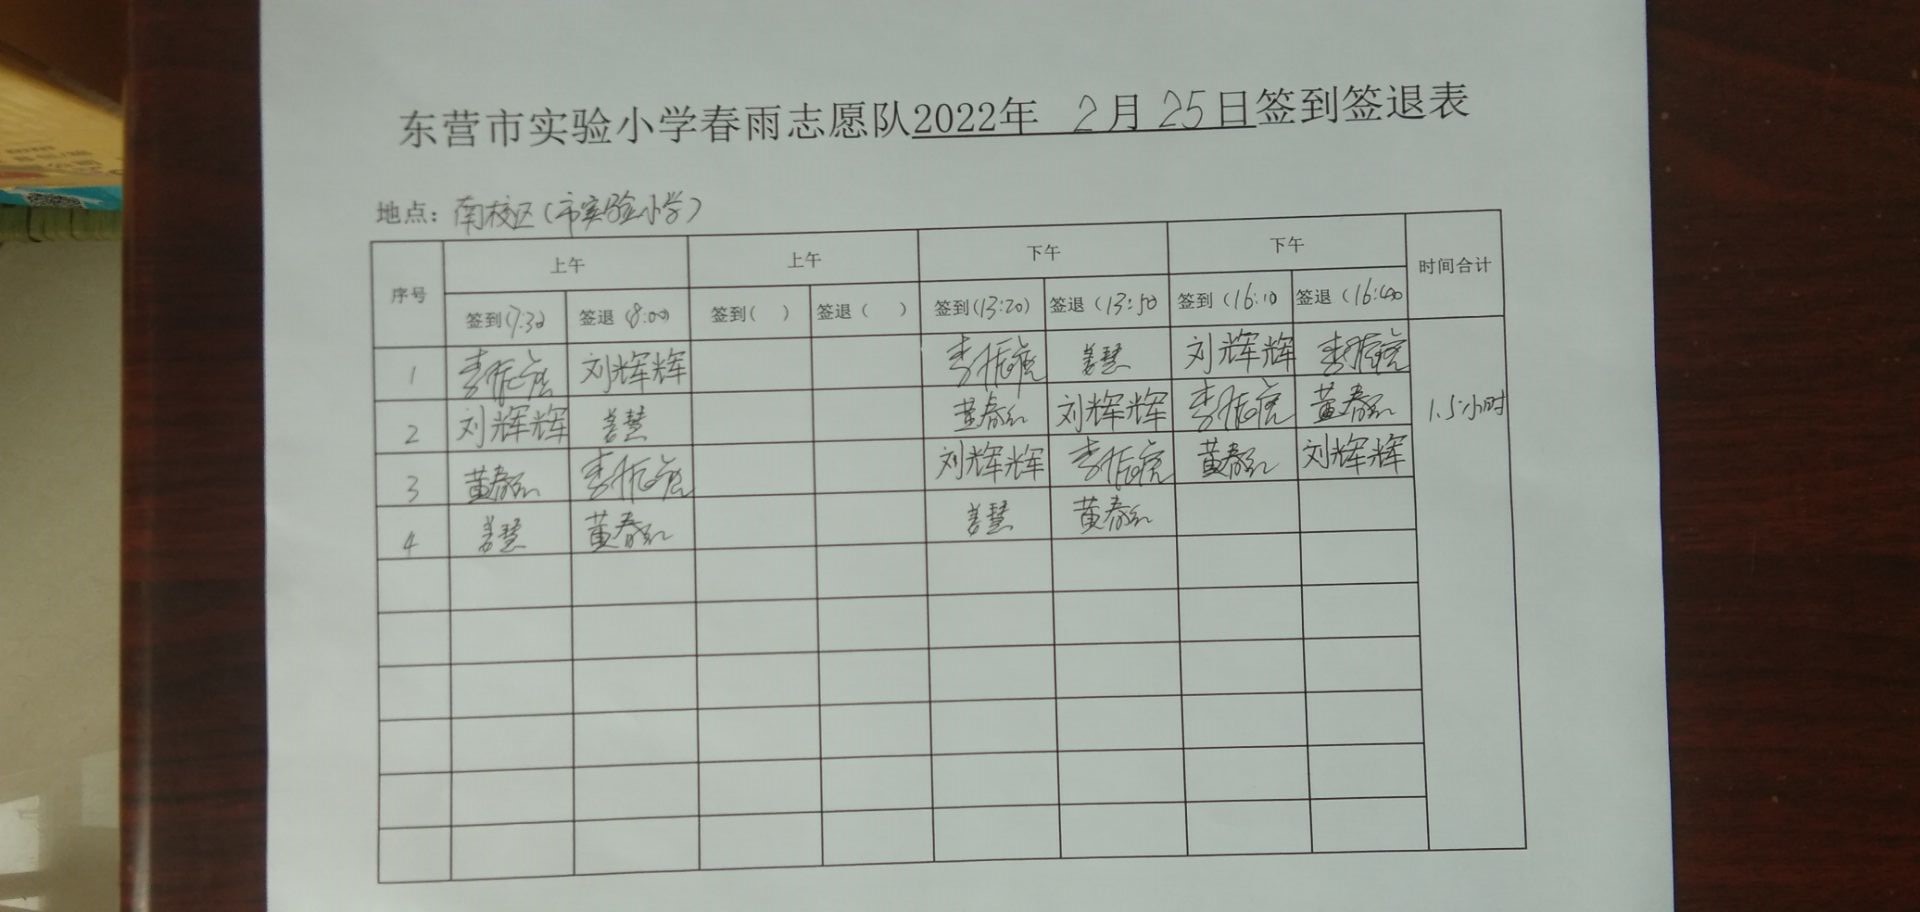 东营市实验小学春雨志愿队2022年 2月25日签到签退表
地点：南校区（市实验小学）
序号 上午 上午 下午 下午 时间合计
签到(7:30) 签退（8:00） 签到（ ） 签退（ ） 签到(13:20) 签退（13:50 签到（16:10 签退（16:40
1 李振虎 刘辉辉 李振虎 姜慧 刘辉辉 李振虎
2 刘辉辉 姜慧 黄春红 刘辉辉 李振虎 黄春红 1.5小时
3 黄春红 李振虎 刘辉辉 李振虎 黄春红 刘辉辉
4 姜慧 黄春红 姜慧 黄春红